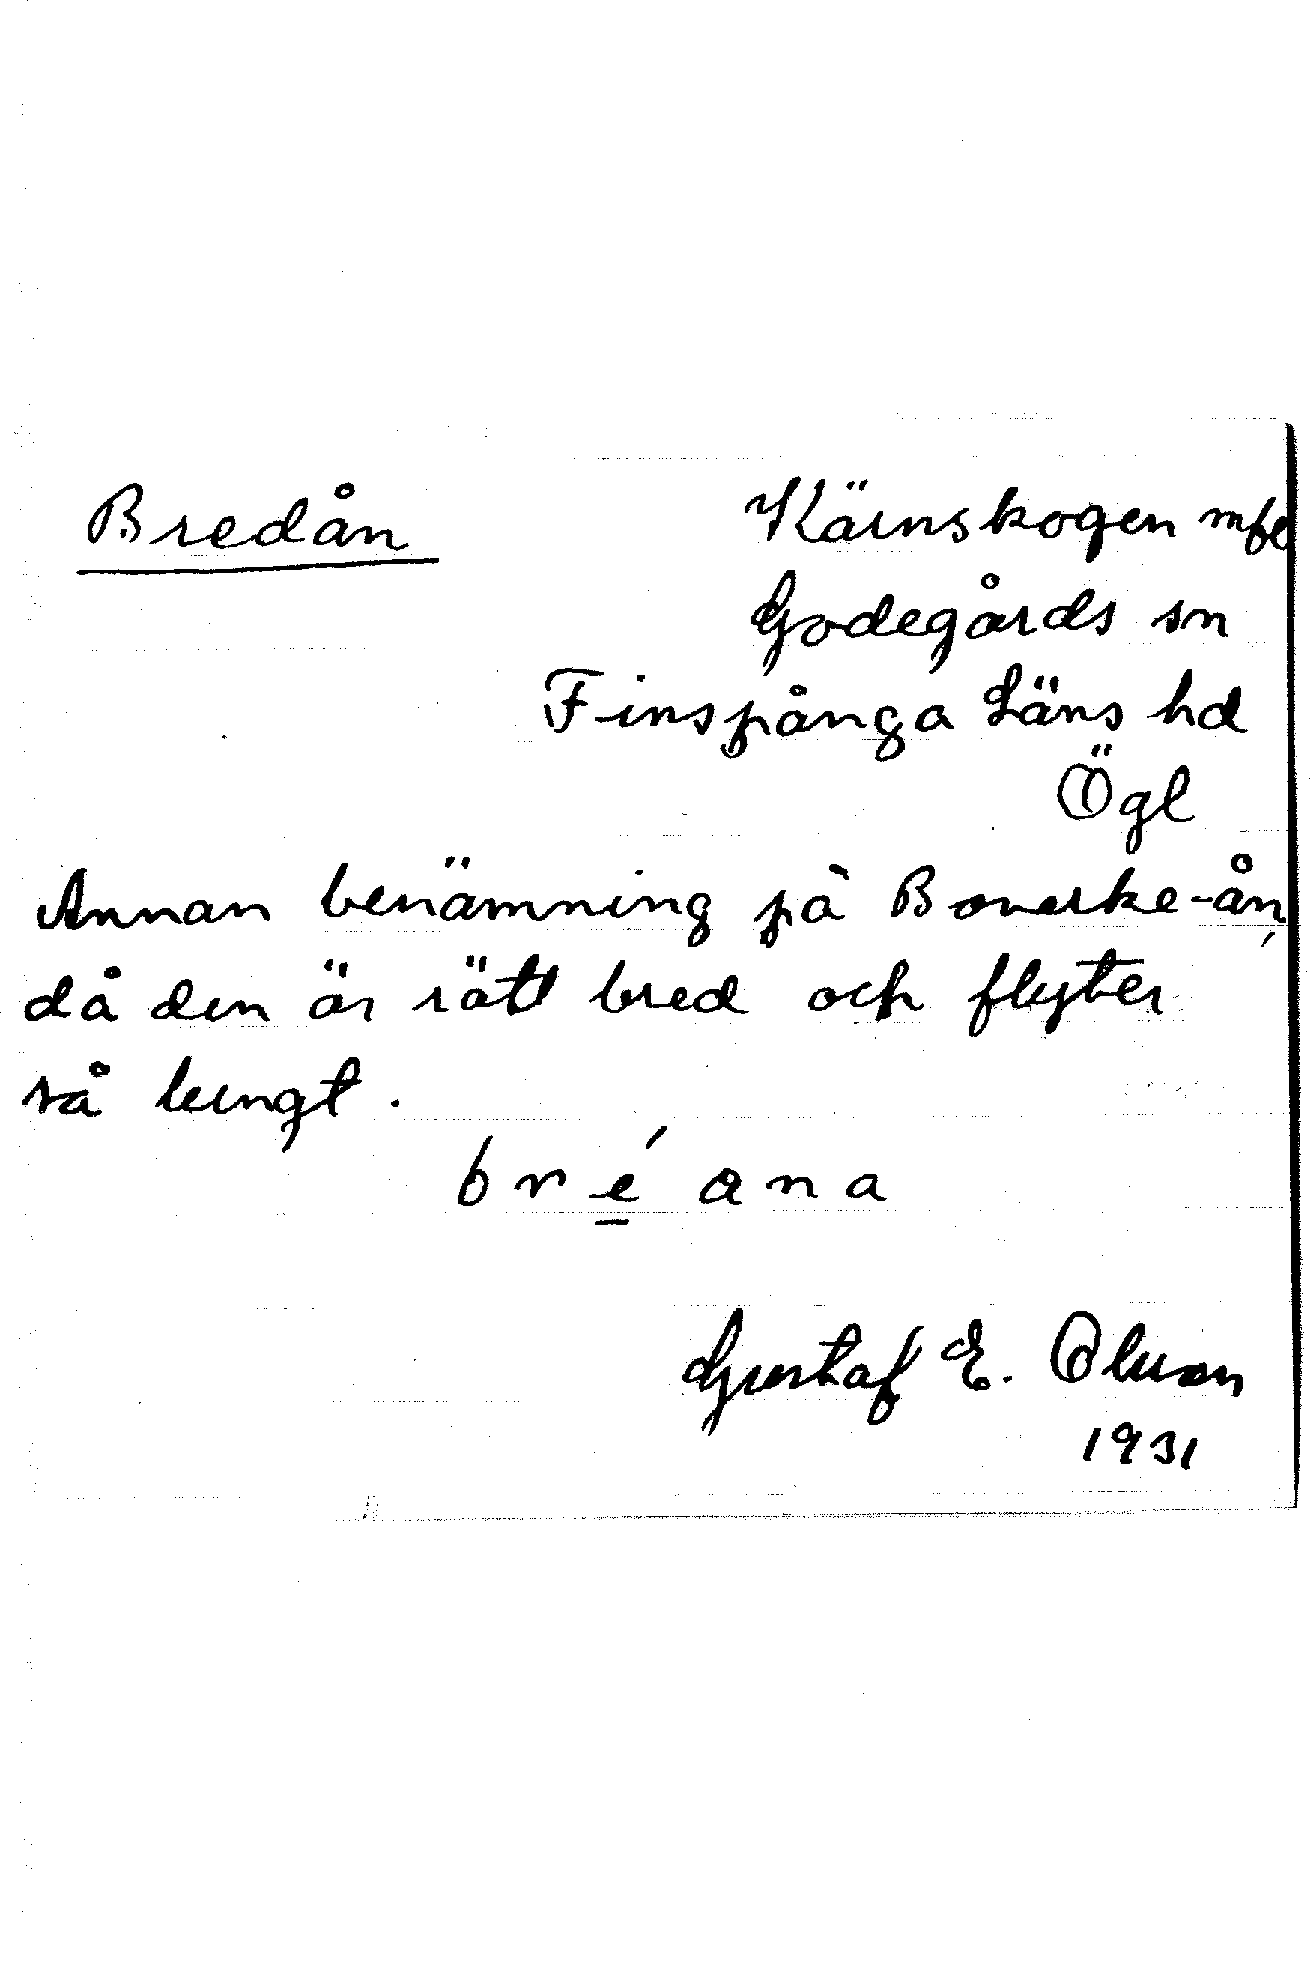 Bredån
Kärnskogen mfl
Godegårds sn
Finspånga Läns hd
Ögl
Annan benämning på Bonerke-ån,
då den är rätt bred och flyter
så lungt.
bré ana
Gustaf E. Olsson
1931